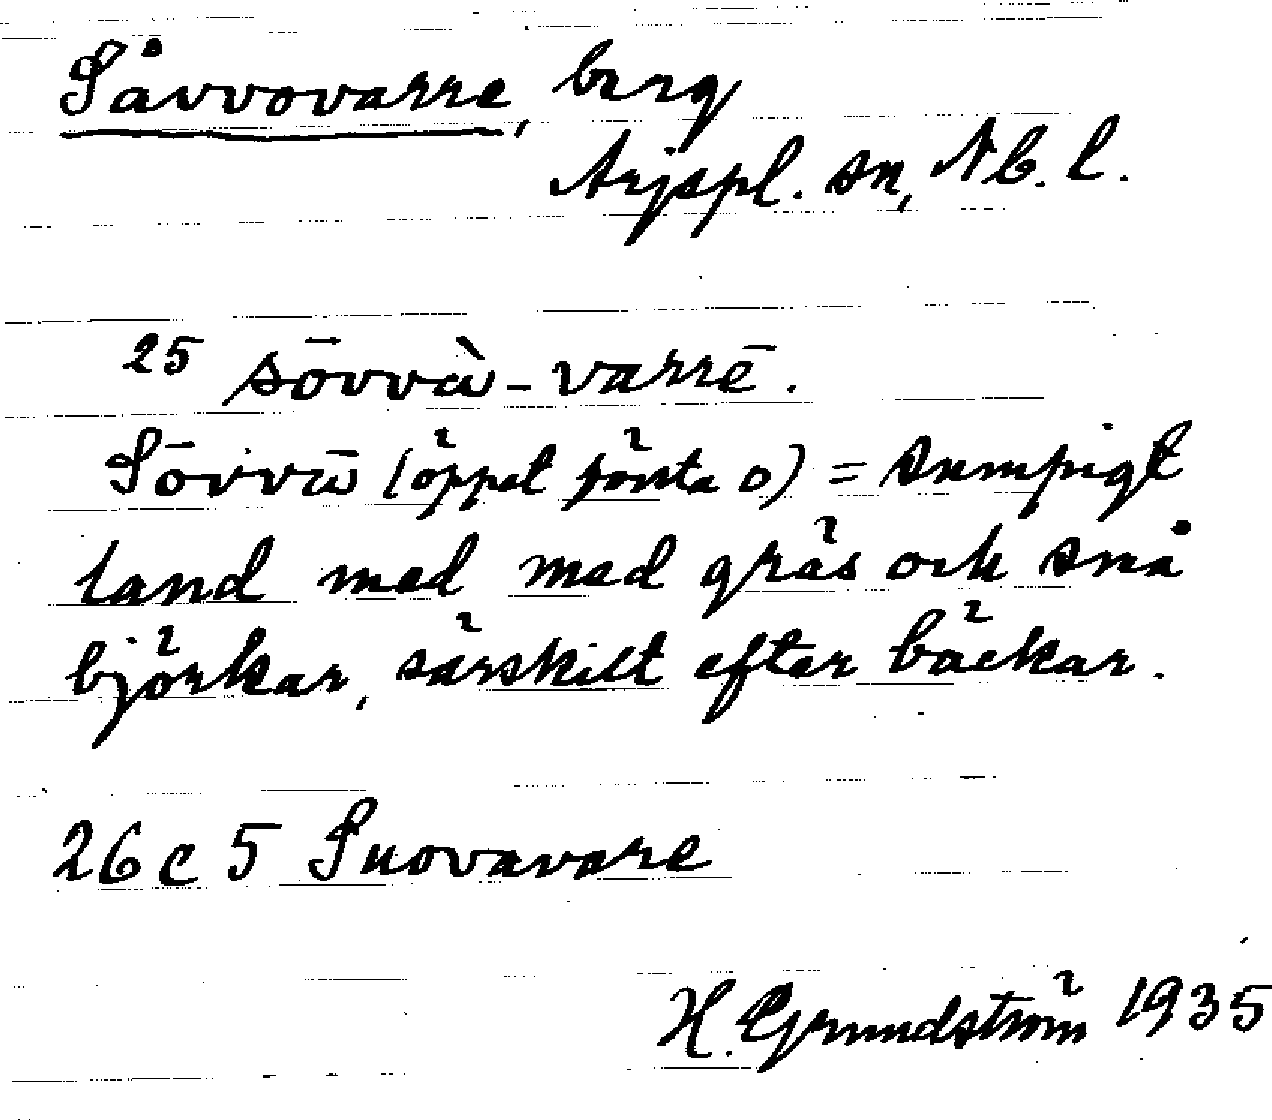 Såvvovarre, berg
Arjepl. sn, Nb. l.
25 sōvvà-varrē.
Sōvvā (öppet första o) = sumpigt
land med med gräs och små
björkar, särskilt efter bäckar.
26 c 5 Suovavare
H. Grundström 1935